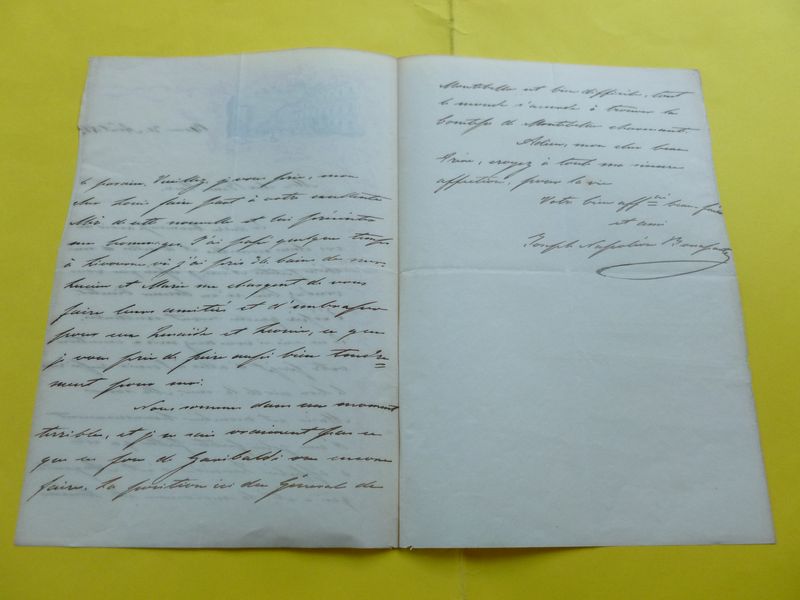 le parrain. Veuillez, je vous prie, mon
cher Louis faire part à votre excellente
de cette nouvelle et lui présenter
mes hommages. J'ai passé quelque temps
à Livourne où j'ai pris 34 bains de mer
Lucien et Marie me chargent de vous
faire leurs amitiés et d'embrasser
pour eux Zénaïde et Léonie, ce que
je vous prie de faire aussi bien tendre=
ment pour moi.
Nous sommes dans un moment
terrible, et je ne sais vraiment pas ce
que ce fou de Garibaldi va encore
faire. La position ici du Général de
Montebello est bien difficile, tout
le monde s'accorde à trouver la
Comtesse de Montebello charmante.
Adieu, mon cher beau
frère, croyez à toute ma sincère
affection, pour la vie
Votre bien affné beau-frère
et ami
Joseph Napoléon Bonaparte